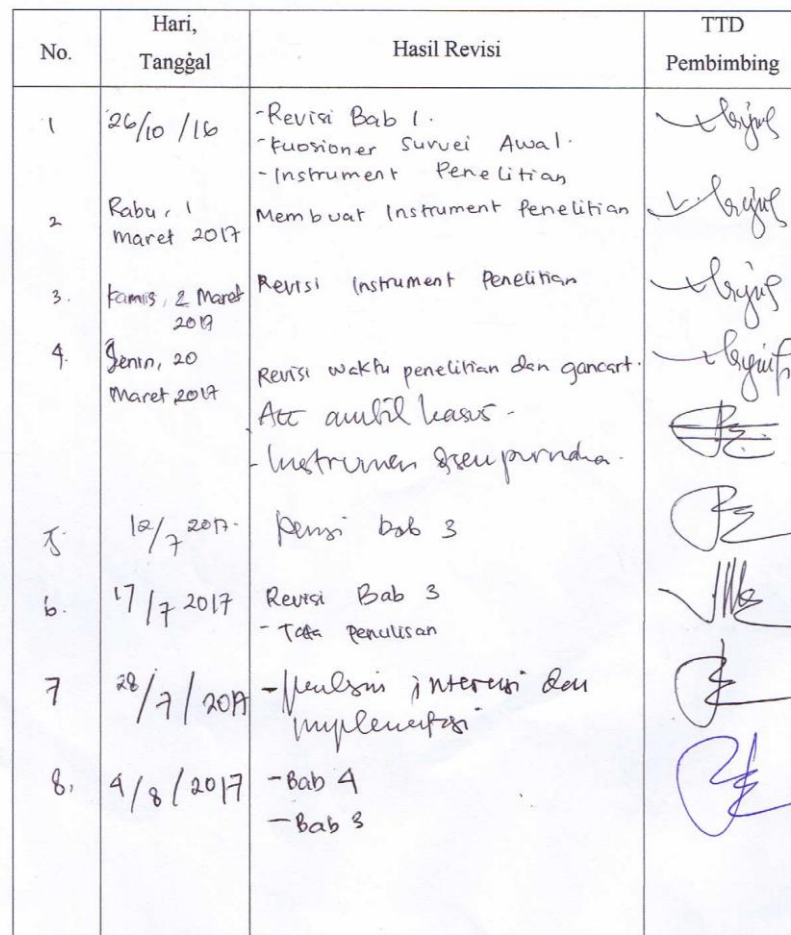 No.
Hari,
Tanggal
Hasil Revisi
TTD
Pembimbing
1
26/10/16
-Revisi Bab 1.
-kuosioner Survei Awal.
-Instrument Penelitian
2
Rabu, 1
maret 2017
Membuat Instrument Penelitian
3.
Kamis, 2 Maret
2017
Revisi Instrument Penelitian
4.
Senin, 20
Maret 2017
Revisi waktu penelitian dan gancart.
Acc ambil kasus -
- Instrumen
5
12/7 2017.
bab 3
6.
17/7 2017
Revisi Bab 3
- Tata penulisan
7
28/7/2017
- intervensi dan
implementasi
8.
4/8/2017
-Bab 4
-Bab 3